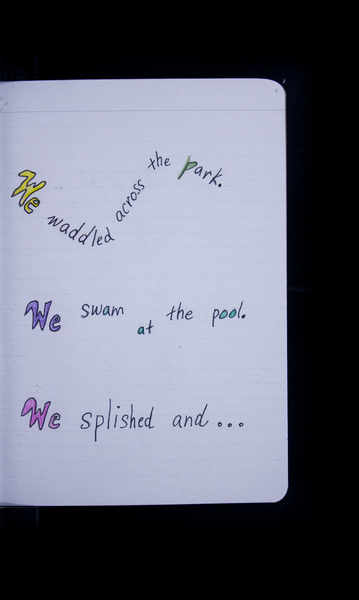 We waddled across the park.
We swam at the pool.
We splished and...